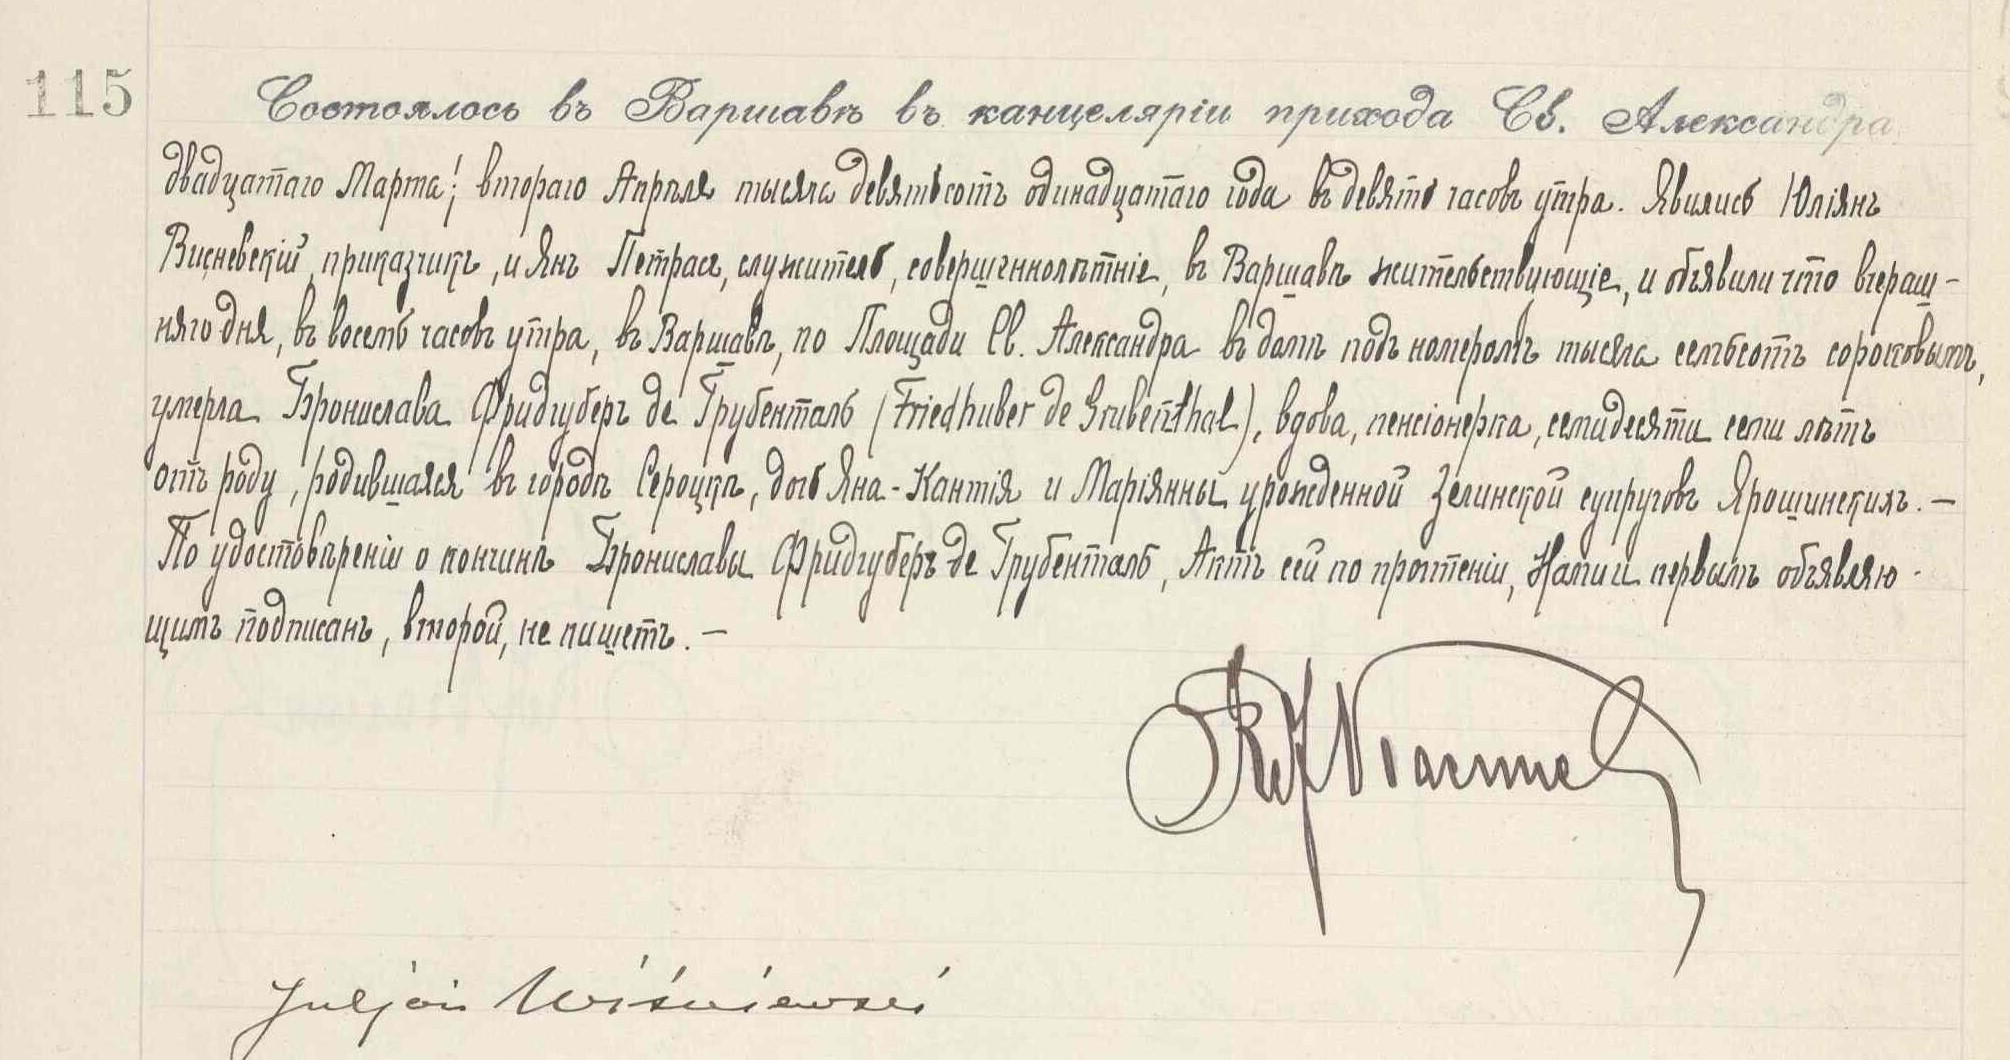 115
Состоялось въ Варшавѣ въ канцеляріи прихода Св. Александра
двадцатаго Марта / втораго Апрѣля тысяча девятьсотъ одинадцатаго года въ девять часовъ утра. Явились Юліянъ
Висневскій, приказчикъ, и Янъ Петрася, служитель, совершеннолѣтніе, въ Варшавѣ жительствующіе, и объявили что вчераш-
няго дня, въ восемь часовъ утра, въ Варшавѣ, по Площади Св. Александра въ домѣ подъ номеромъ тысяча семьсотъ сороковымъ,
умерла Бронислава Фридгуберъ де Грубенталь (Friedhuber de Grubenthal), вдова, пенсіонерка, семидесяти семи лѣтъ
отъ роду, родившаяся въ городѣ Сероцкѣ, дочь Яна-Кантія и Маріянны урожденной Зелинской супруговъ Ярошинскихъ. —
По удостовѣреніи о кончинѣ Брониславы Фридгуберъ де Грубенталь, Актъ сей по прочтеніи, Нами и первымъ объявляю-
щимъ подписанъ, второй, не пишетъ. —
Juljan Wiśniewski